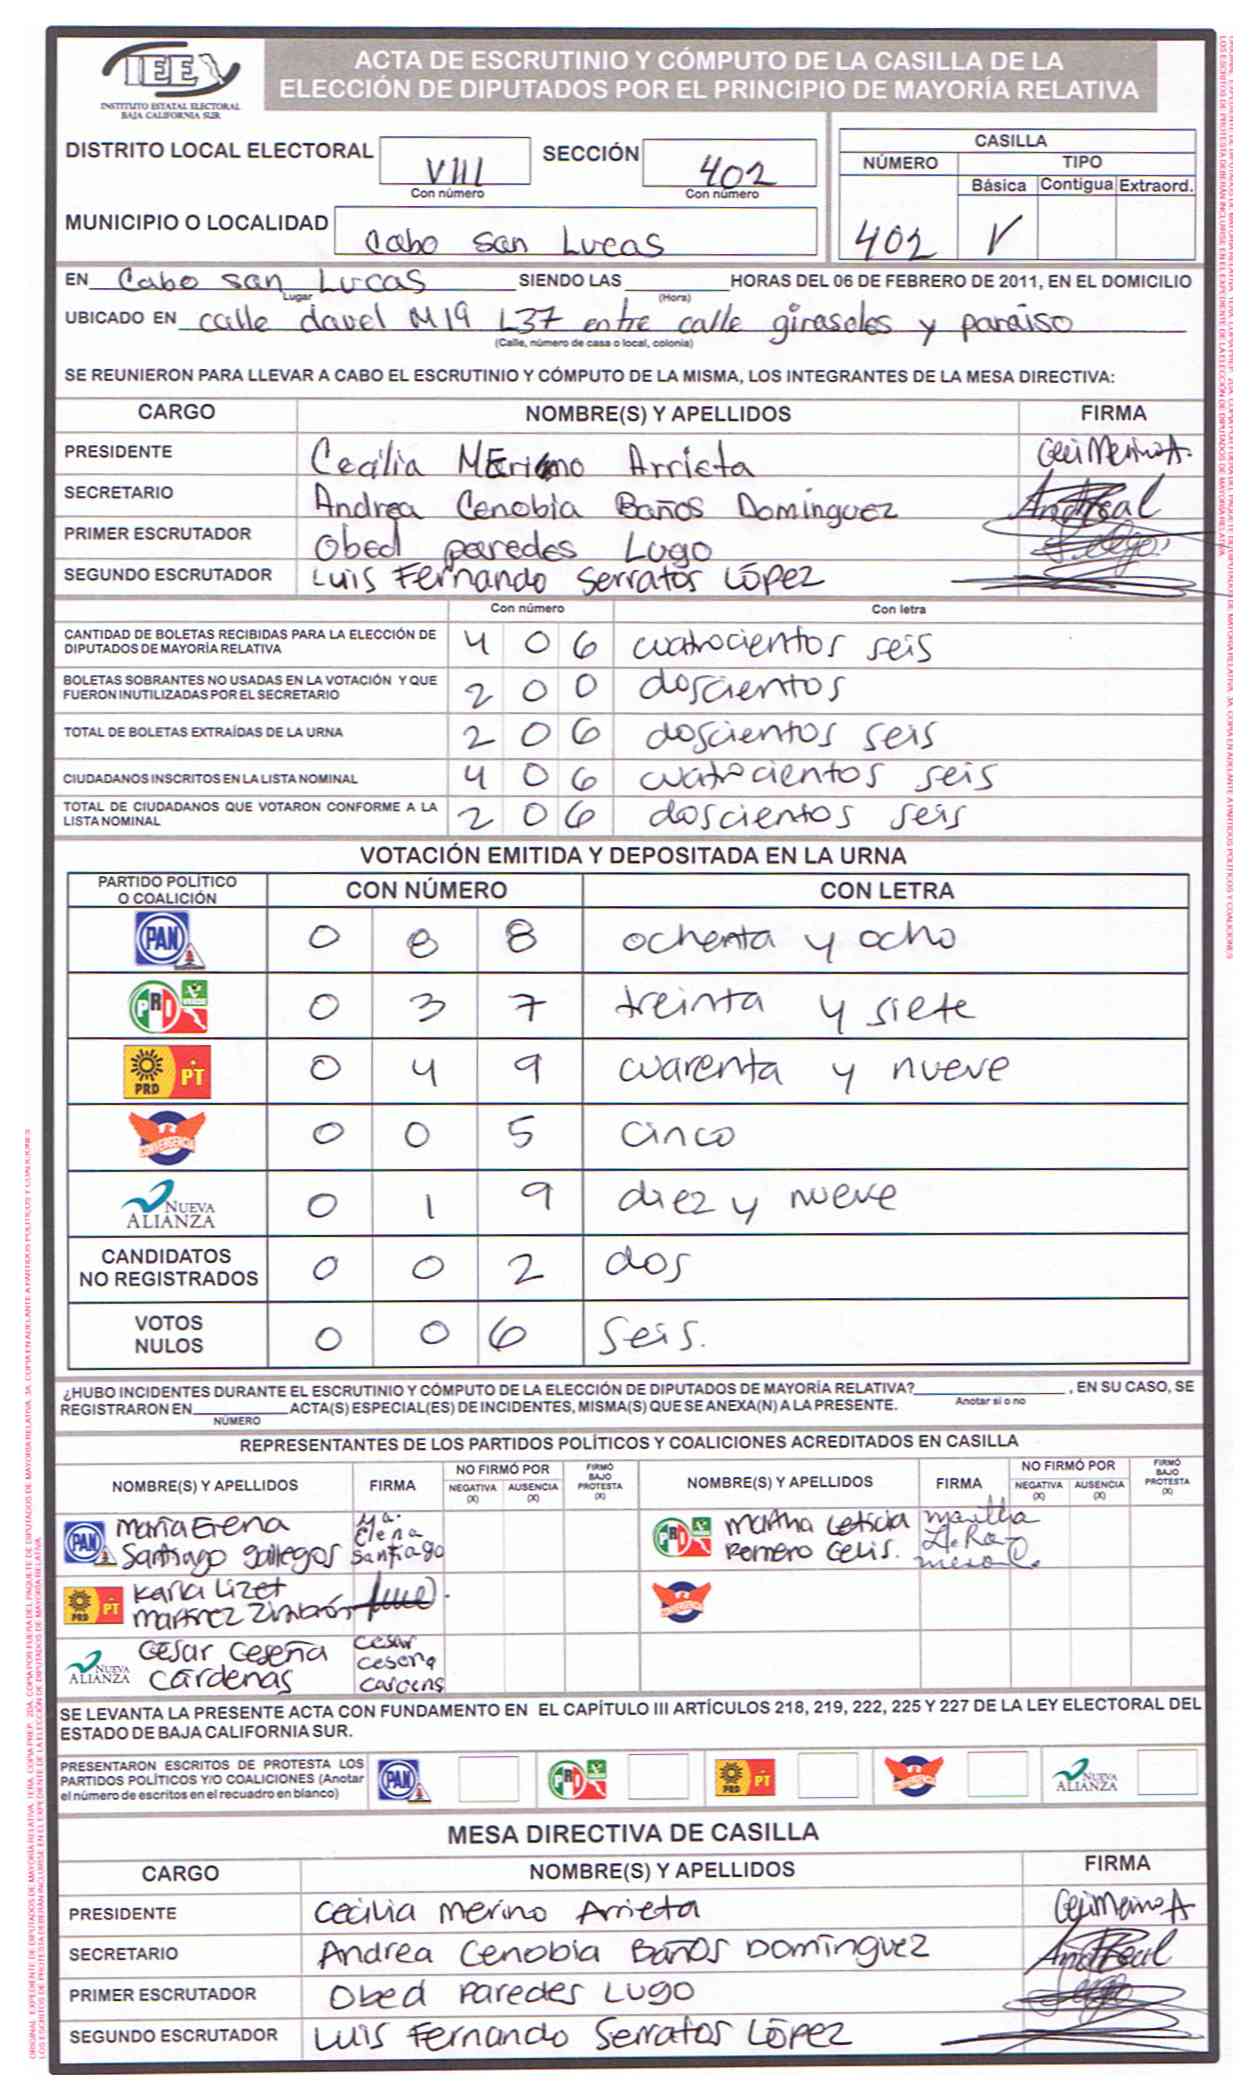 IEE
INSTITUTO ESTATAL ELECTORAL
BAJA CALIFORNIA SUR
ACTA DE ESCRUTINIO Y CÓMPUTO DE LA CASILLA DE LA
ELECCIÓN DE DIPUTADOS POR EL PRINCIPIO DE MAYORÍA RELATIVA
DISTRITO LOCAL ELECTORAL VIII SECCIÓN 402
Con número Con número
CASILLA
NÚMERO TIPO
Básica Contigua Extraord.
402 V
MUNICIPIO O LOCALIDAD Cabo san Lucas
EN Cabo san Lucas SIENDO LAS HORAS DEL 06 DE FEBRERO DE 2011, EN EL DOMICILIO
Lugar (Hora)
UBICADO EN calle davel M19 L37 entre calle girasoles y paraiso
(Calle, número de casa o local, colonia)
SE REUNIERON PARA LLEVAR A CABO EL ESCRUTINIO Y CÓMPUTO DE LA MISMA, LOS INTEGRANTES DE LA MESA DIRECTIVA:
CARGO NOMBRE(S) Y APELLIDOS FIRMA
PRESIDENTE Cecilia Merino Arrieta Ceci Merino A.
SECRETARIO Andrea Cenobia Baños Dominguez
PRIMER ESCRUTADOR Obed paredes Lugo
SEGUNDO ESCRUTADOR Luis Fernando Serratos López
Con número Con letra
CANTIDAD DE BOLETAS RECIBIDAS PARA LA ELECCIÓN DE
DIPUTADOS DE MAYORÍA RELATIVA 4 0 6 cuatrocientos seis
BOLETAS SOBRANTES NO USADAS EN LA VOTACIÓN Y QUE
FUERON INUTILIZADAS POR EL SECRETARIO 2 0 0 doscientos
TOTAL DE BOLETAS EXTRAÍDAS DE LA URNA 2 0 6 doscientos seis
CIUDADANOS INSCRITOS EN LA LISTA NOMINAL 4 0 6 cuatrocientos seis
TOTAL DE CIUDADANOS QUE VOTARON CONFORME A LA
LISTA NOMINAL 2 0 6 doscientos seis
VOTACIÓN EMITIDA Y DEPOSITADA EN LA URNA
PARTIDO POLÍTICO
O COALICIÓN CON NÚMERO CON LETRA
PAN 0 8 8 ochenta y ocho
PRI VERDE 0 3 7 treinta y siete
PRD PT 0 4 9 cuarenta y nueve
CONVERGENCIA 0 0 5 cinco
NUEVA ALIANZA 0 1 9 diez y nueve
CANDIDATOS
NO REGISTRADOS 0 0 2 dos
VOTOS
NULOS 0 0 6 seis.
¿HUBO INCIDENTES DURANTE EL ESCRUTINIO Y CÓMPUTO DE LA ELECCIÓN DE DIPUTADOS DE MAYORÍA RELATIVA? , EN SU CASO, SE
Anotar si o no
REGISTRARON EN ACTA(S) ESPECIAL(ES) DE INCIDENTES, MISMA(S) QUE SE ANEXA(N) A LA PRESENTE.
NÚMERO
REPRESENTANTES DE LOS PARTIDOS POLÍTICOS Y COALICIONES ACREDITADOS EN CASILLA
NOMBRE(S) Y APELLIDOS FIRMA NO FIRMÓ POR NEGATIVA (X) AUSENCIA (X) FIRMÓ BAJO PROTESTA (X) NOMBRE(S) Y APELLIDOS FIRMA NO FIRMÓ POR NEGATIVA (X) AUSENCIA (X) FIRMÓ BAJO PROTESTA (X)
PAN María Elena Santiago gallegos Ma. Elena Santiago
PRI Martha Leticia Romero Celis. Martha
PRD PT Karla Lizet Martinez
CONVERGENCIA
NUEVA ALIANZA César Ceseña Cárdenas Cesar Ceseña
SE LEVANTA LA PRESENTE ACTA CON FUNDAMENTO EN EL CAPÍTULO III ARTÍCULOS 218, 219, 222, 225 Y 227 DE LA LEY ELECTORAL DEL
ESTADO DE BAJA CALIFORNIA SUR.
PRESENTARON ESCRITOS DE PROTESTA LOS
PARTIDOS POLÍTICOS Y/O COALICIONES (Anotar
el número de escritos en el recuadro en blanco)
PAN PRI PRD PT CONVERGENCIA NUEVA ALIANZA
MESA DIRECTIVA DE CASILLA
CARGO NOMBRE(S) Y APELLIDOS FIRMA
PRESIDENTE Cecilia Merino Arrieta Ceci Merino A
SECRETARIO Andrea Cenobia Baños Domínguez
PRIMER ESCRUTADOR Obed Paredes Lugo
SEGUNDO ESCRUTADOR Luis Fernando Serratos López